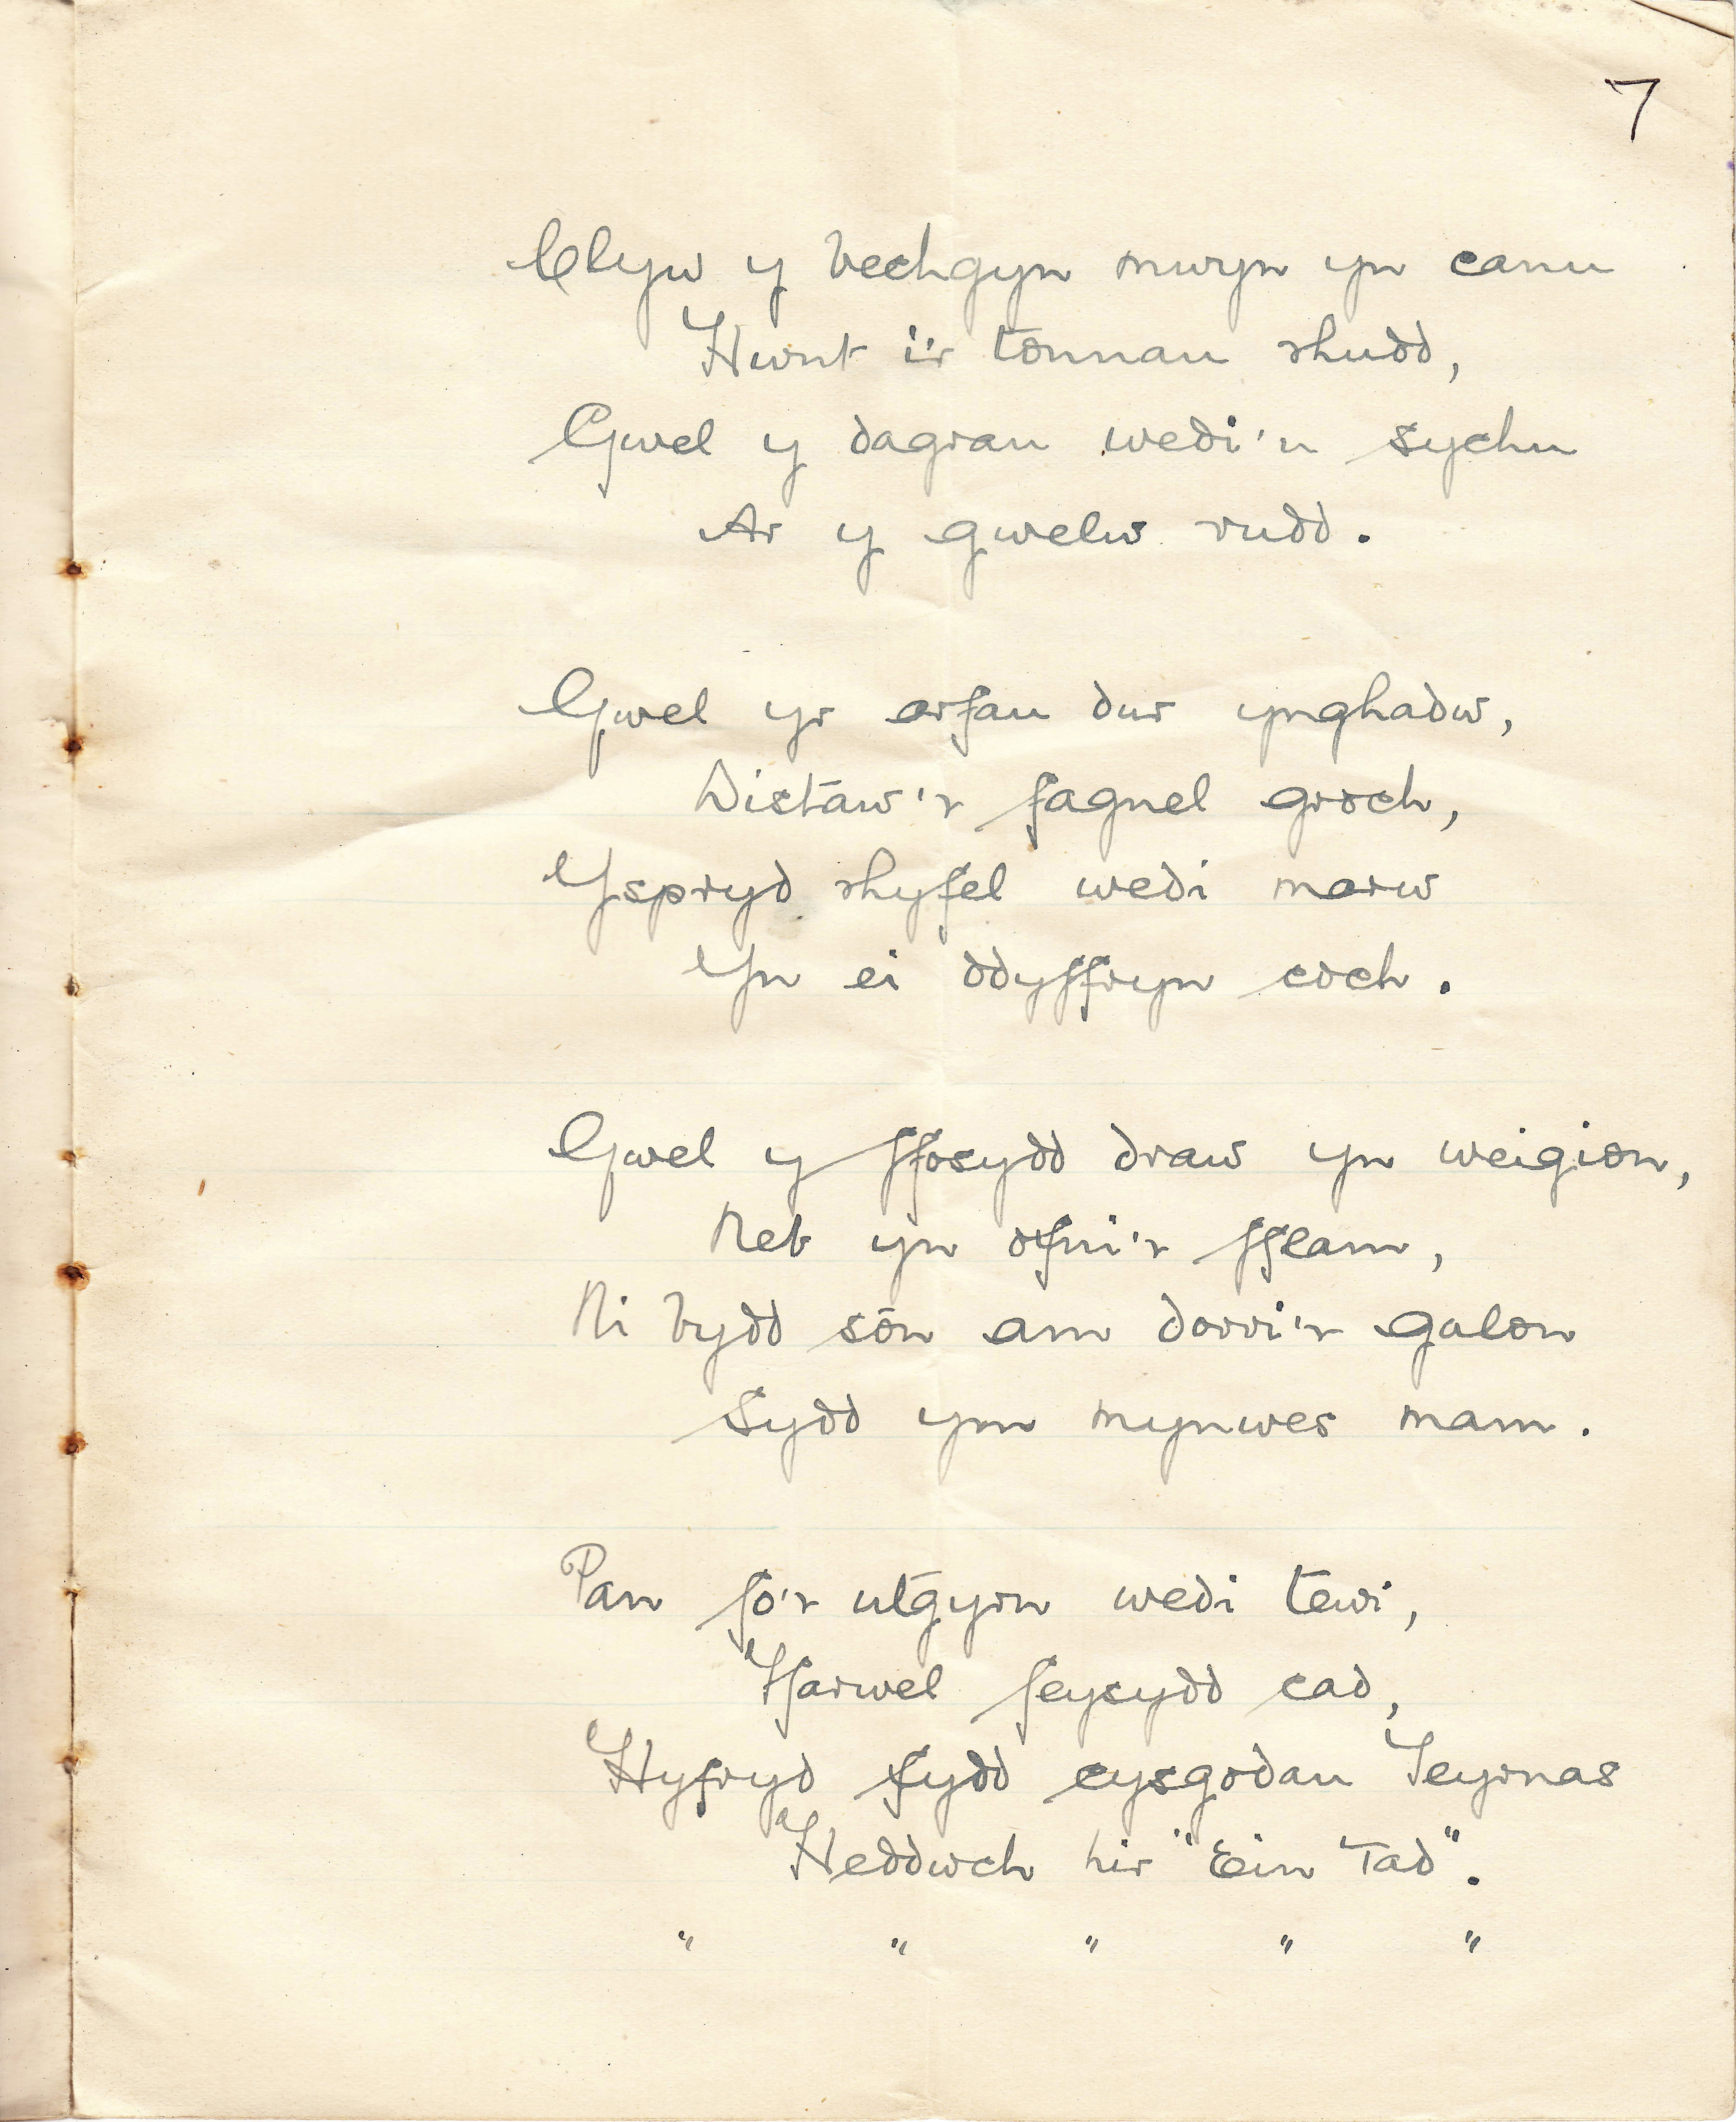 7
Clyw y bechgyn mwyn yn canu
Hwnt i'r tonnau rhudd,
Gwel y dagrau wedi'u sychu
Ar y gwelw rudd.
Gwel yr arfau dur ynghadw,
Distaw'r fagnel groch,
Yspryd rhyfel wedi marw
Yn ei ddyffryn coch.
Gwel y ffosydd draw yn weigion,
Neb yn ofni'r fflam,
Ni bydd sôn am dorri'r galon
Sydd ym mynwes mam.
Pan fo'r utgyrn wedi tewi,
Ffarwel feysydd cad,
Hyfryd fydd cysgodau Teyrnas
Heddwch hir "Ein Tad".
" " " " "